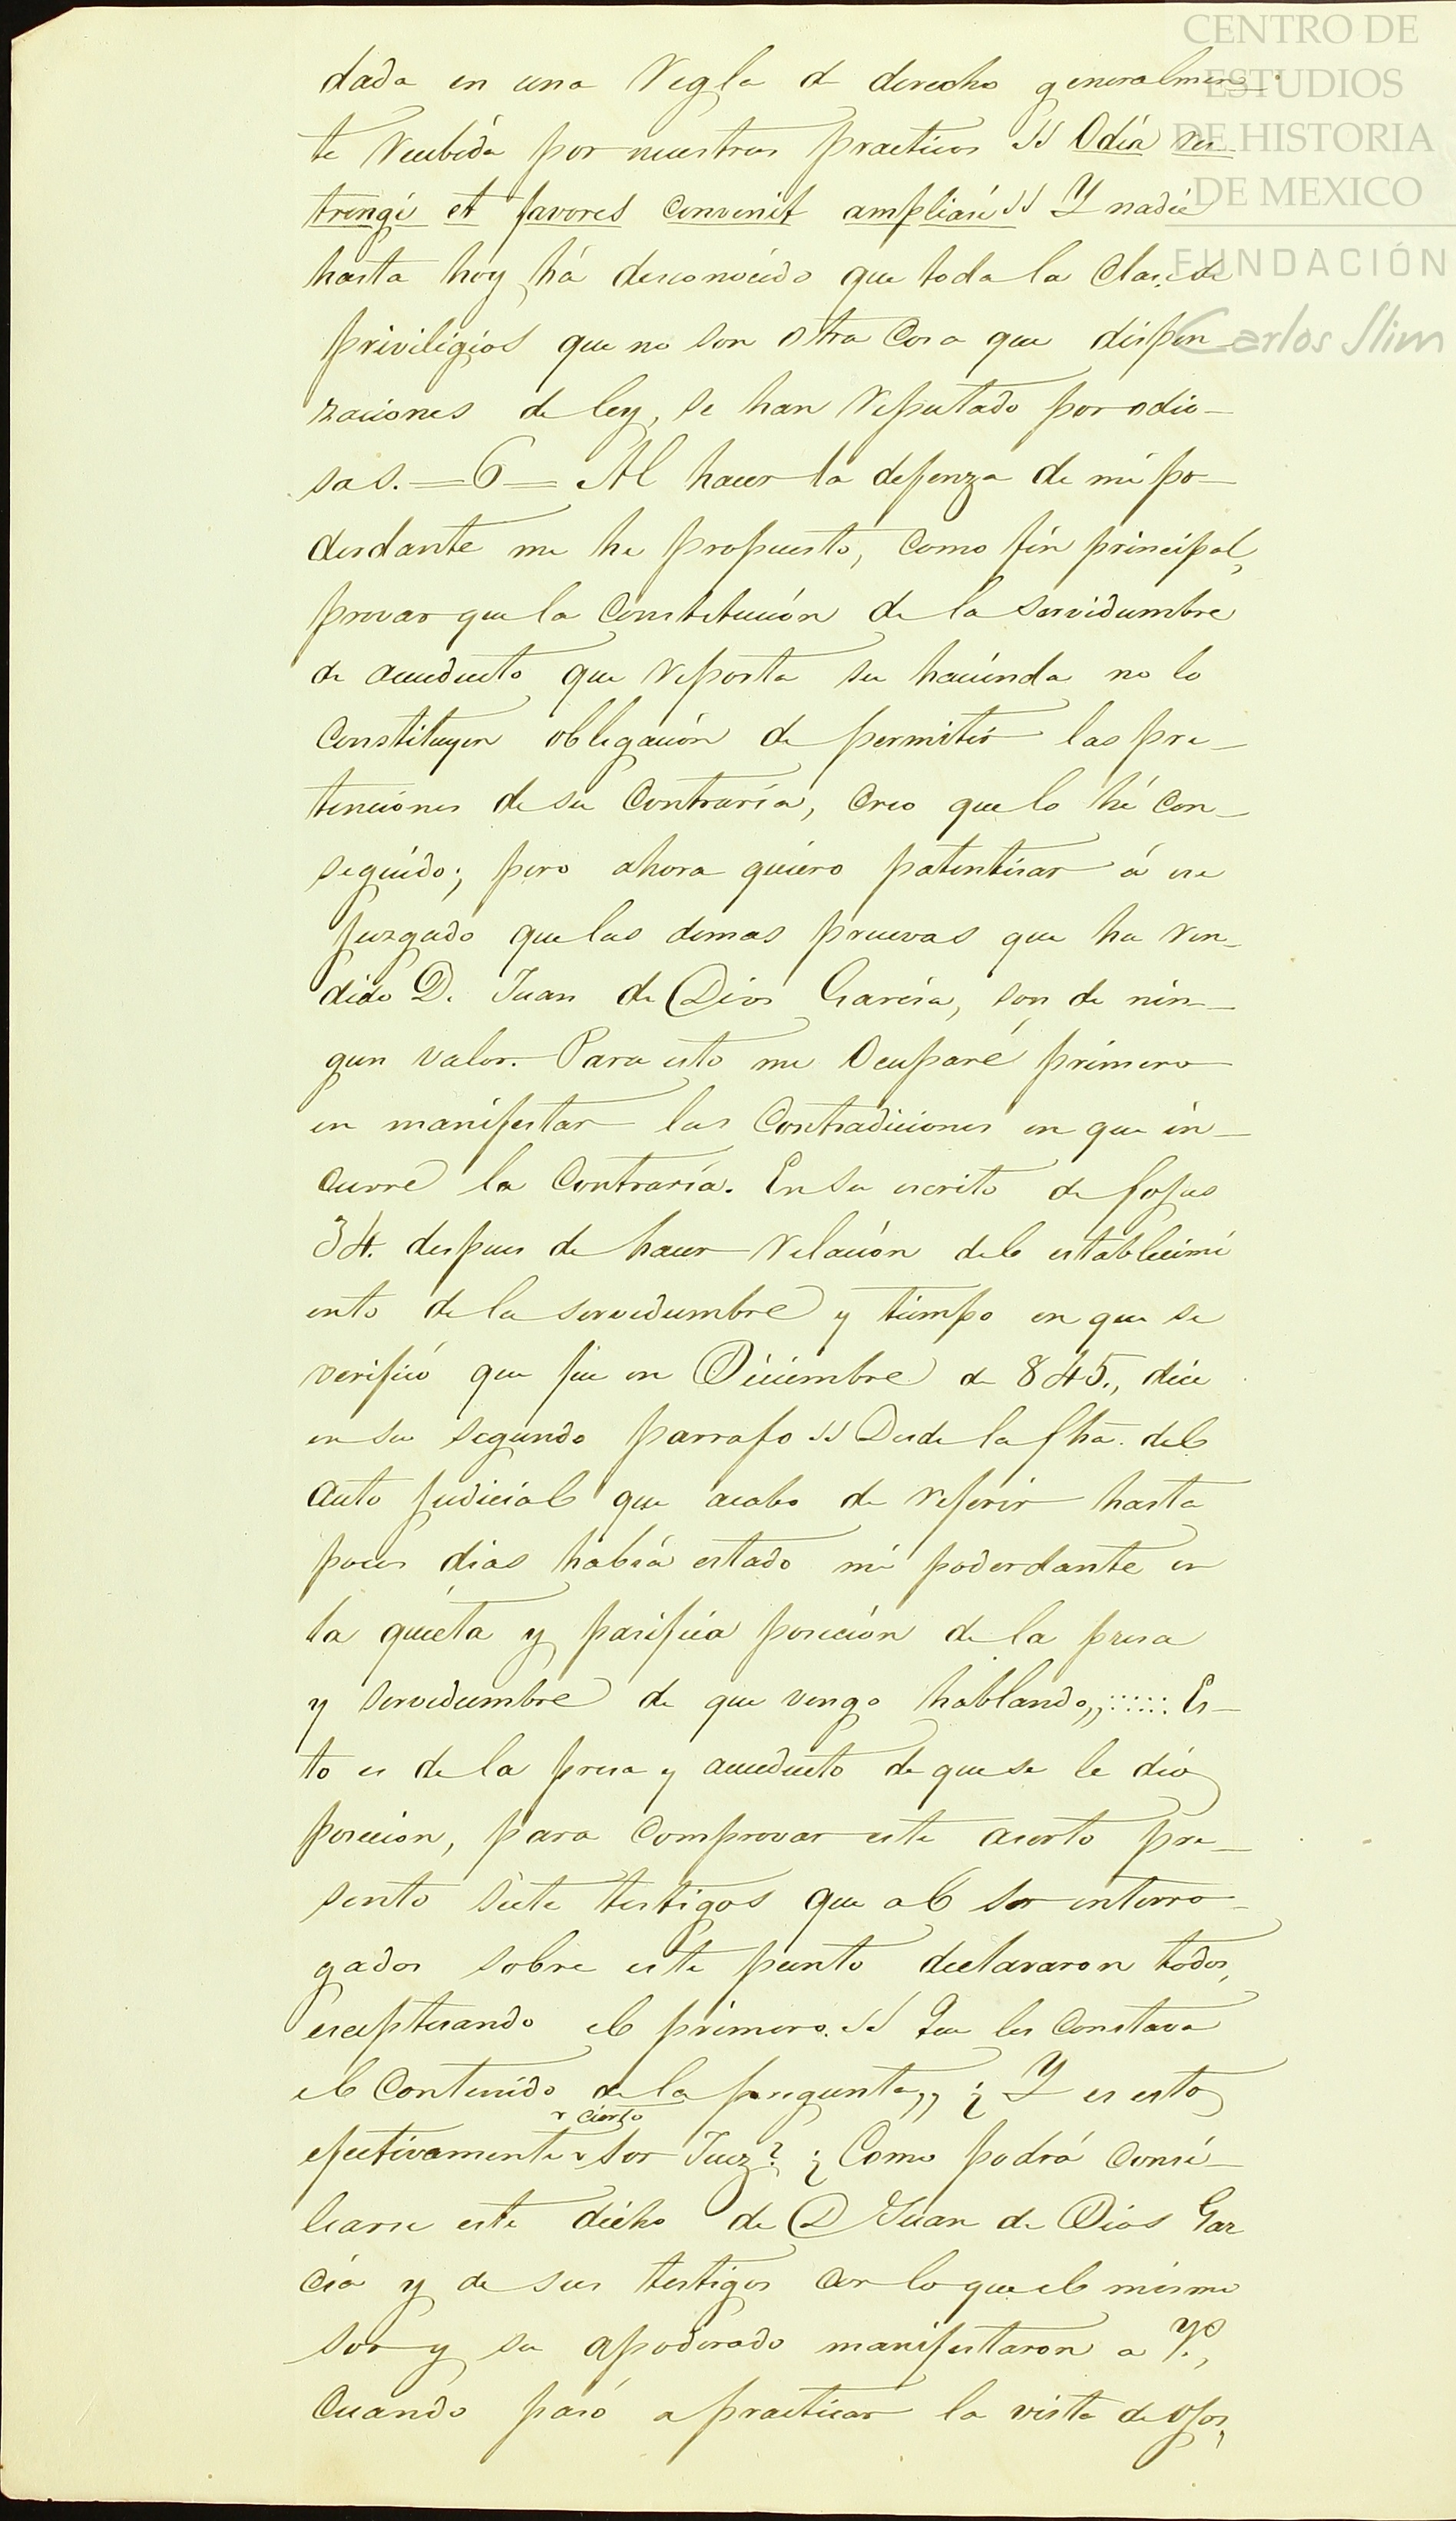 CENTRO DE
ESTUDIOS
DE HISTORIA
DE MEXICO
FUNDACIÓN
Carlos Slim
dada en una Regla de derecho generalmen-
te Recibida por nuestros practicos " Odia res-
tringi et favores convenit ampliari " Y nadie
hasta hoy há desconocido que toda la clase de
priviligios que no son otra cosa que dispen-
zaciones de ley, se han Reputado por odio-
sas. = 6 = Al hacer la defenza de mi po-
derdante me he propuesto, como fin principal,
provar que la Constitución de la servidumbre
de acueducto que Reporta su hacienda no lo
Constituyen obligación de permitir las pre-
tenciones de su Contraria, Creo que lo hé con-
seguido; pero ahora quiero patentisar á ese
juzgado que las demas pruevas que ha ren-
dido D. Juan de Dios Garcia, son de nin-
gun valor. Para esto me Ocuparé primero
en manifestar las Contradiciones en que in-
curre la Contraria. En su escrito de fojas
34. despues de hacer Relación del establecimi
ento de la servidumbre y tiempo en que se
verificó que fue en Diciembre de 845., dice
en su segundo parrafo " Desde la fha. del
auto judicial que acabo de referir hasta
pocos dias habia estado mi poderdante en
la quieta y pasifica posición de la presa
y servidumbre de que vengo hablando,, :::::: Es-
to es de la presa y acueducto de que se le dió
posecion, para Comprovar este aserto pre-
sento siete testigos que al ser interro-
gados sobre este punto declararon todos,
esceptuando el primero. " Que les Constava
el Contenido de la pregunta,, ¿ Y es esto
cierto
efectivamente Sor Juez? ¿ Como podrá Consi-
liarse este dicho de D Juan de Dios Gar
cia y de sus testigos con lo que el mismo
sor y su apoderado manifestaron a V.,
Cuando pasó a practicar la vista de ojos,